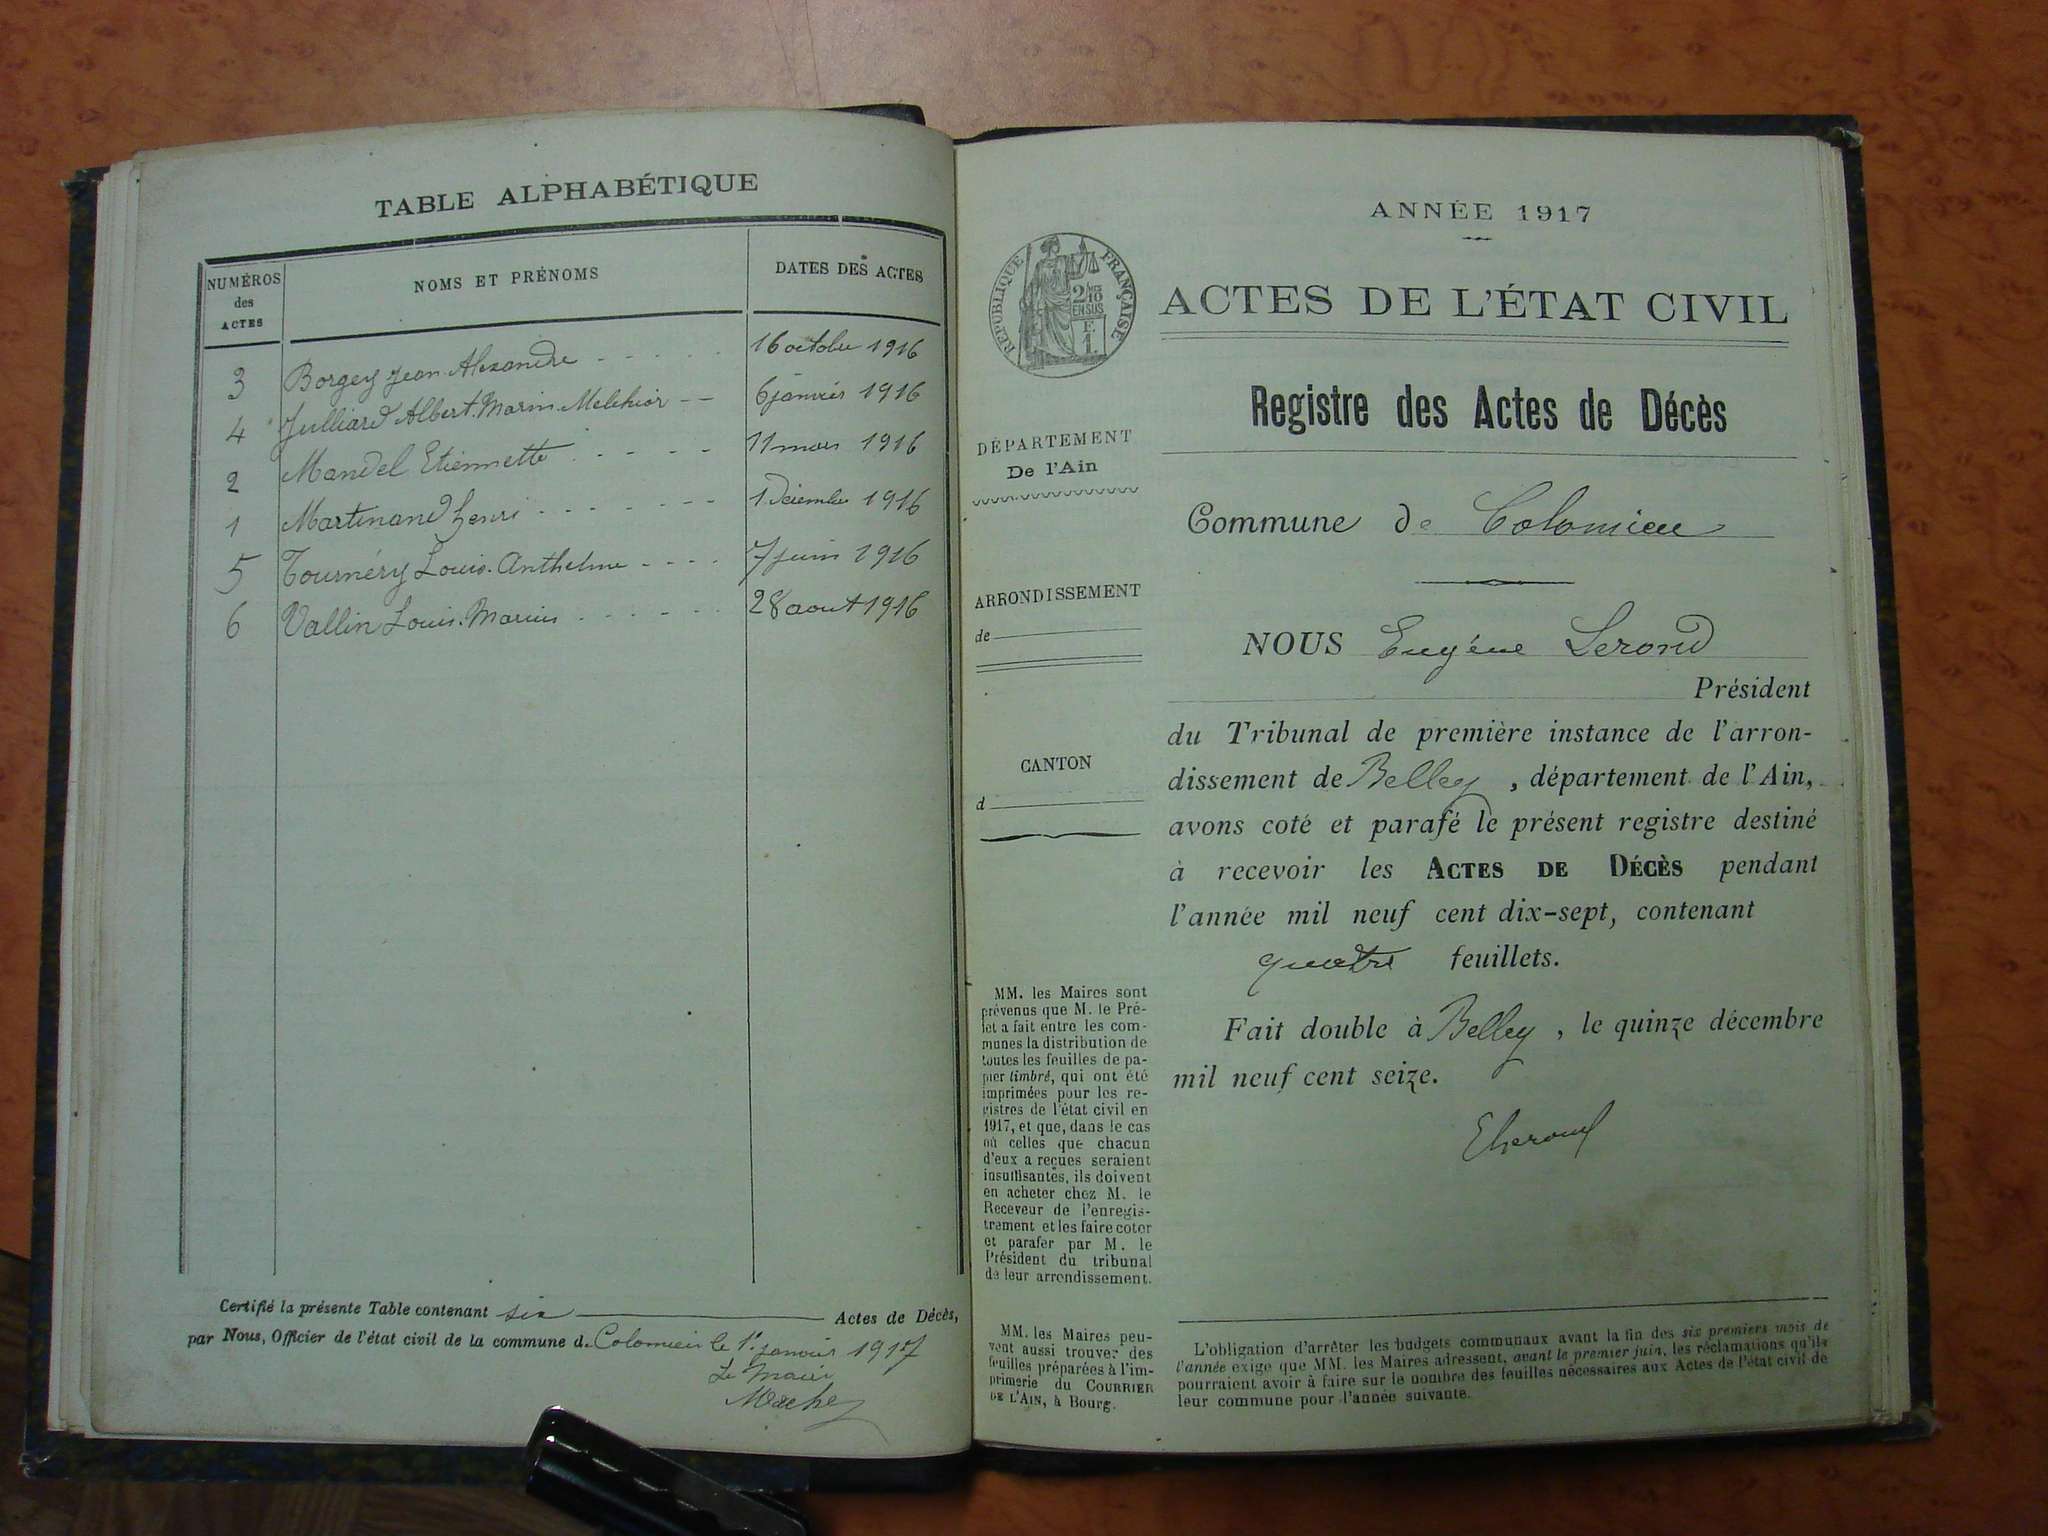 TABLE ALPHABÉTIQUE
NUMÉROS des ACTES
NOMS ET PRÉNOMS
DATES DES ACTES
3 Borgey Jean Alexandre 16 octobre 1916
4 Julliard Albert Marin Melchior 6 janvier 1916
2 Mandel Etiennette 11 mars 1916
1 Martinand Henri 1 Décembre 1916
5 Tournéry Louis Anthelme 7 juin 1916
6 Vallin Louis Marius 28 aout 1916
Certifié la présente Table contenant six Actes de Décès,
par Nous, Officier de l'état civil de la commune d. Colomieu le 1er janvier 1917
Le Maire
ANNÉE 1917
RÉPUBLIQUE FRANÇAISE
2/10
EN SUS
F.
1.
ACTES DE L'ÉTAT CIVIL
Registre des Actes de Décès
DÉPARTEMENT
De l'Ain
Commune de Colomieu
ARRONDISSEMENT
de
CANTON
d
NOUS Eugène Lerond
Président
du Tribunal de première instance de l'arron-
dissement de Belley, département de l'Ain,
avons coté et parafé le présent registre destiné
à recevoir les ACTES DE DÉCÈS pendant
l'année mil neuf cent dix-sept, contenant
quatre feuillets.
Fait double à Belley, le quinze décembre
mil neuf cent seize.
ELerond
MM. les Maires sont
prévenus que M. le Pré-
fet a fait entre les com-
munes la distribution de
toutes les feuilles de pa-
pier timbré, qui ont été
imprimées pour les re-
gistres de l'état civil en
1917, et que, dans le cas
où celles que chacun
d'eux a reçues seraient
insuffisantes, ils doivent
en acheter chez M. le
Receveur de l'enregis-
trement et les faire coter
et parafer par M. le
Président du tribunal
de leur arrondissement.
MM. les Maires peu-
vent aussi trouver des
feuilles préparées à l'im-
primerie du COURRIER
DE L'AIN, à Bourg.
L'obligation d'arrêter les budgets communaux avant la fin des six premiers mois de
l'année exige que MM. les Maires adressent, avant le premier juin, les réclamations qu'ils
pourraient avoir à faire sur le nombre des feuilles nécessaires aux Actes de l'état civil de
leur commune pour l'année suivante.